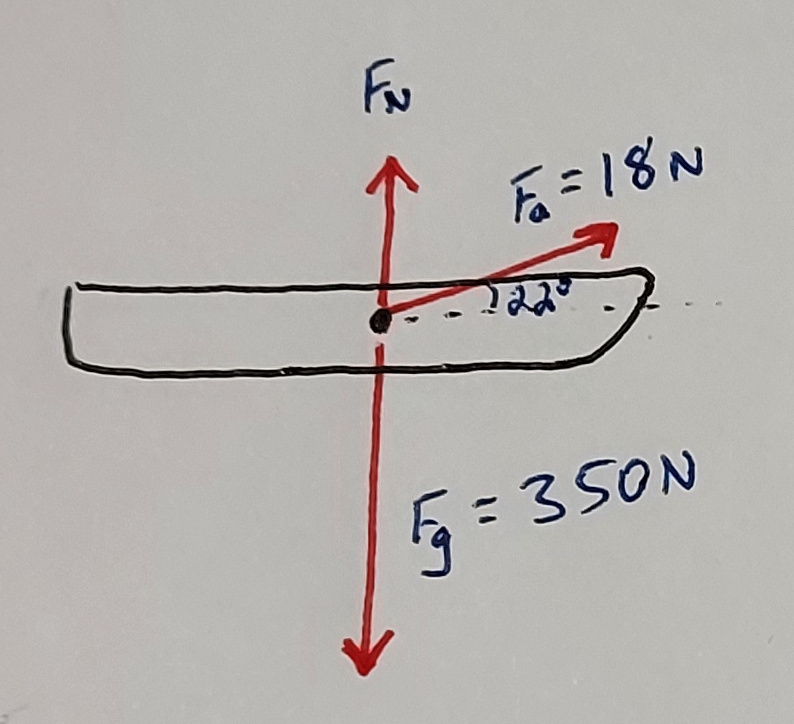 F_N
F_a = 18 N
22°
F_g = 350 N